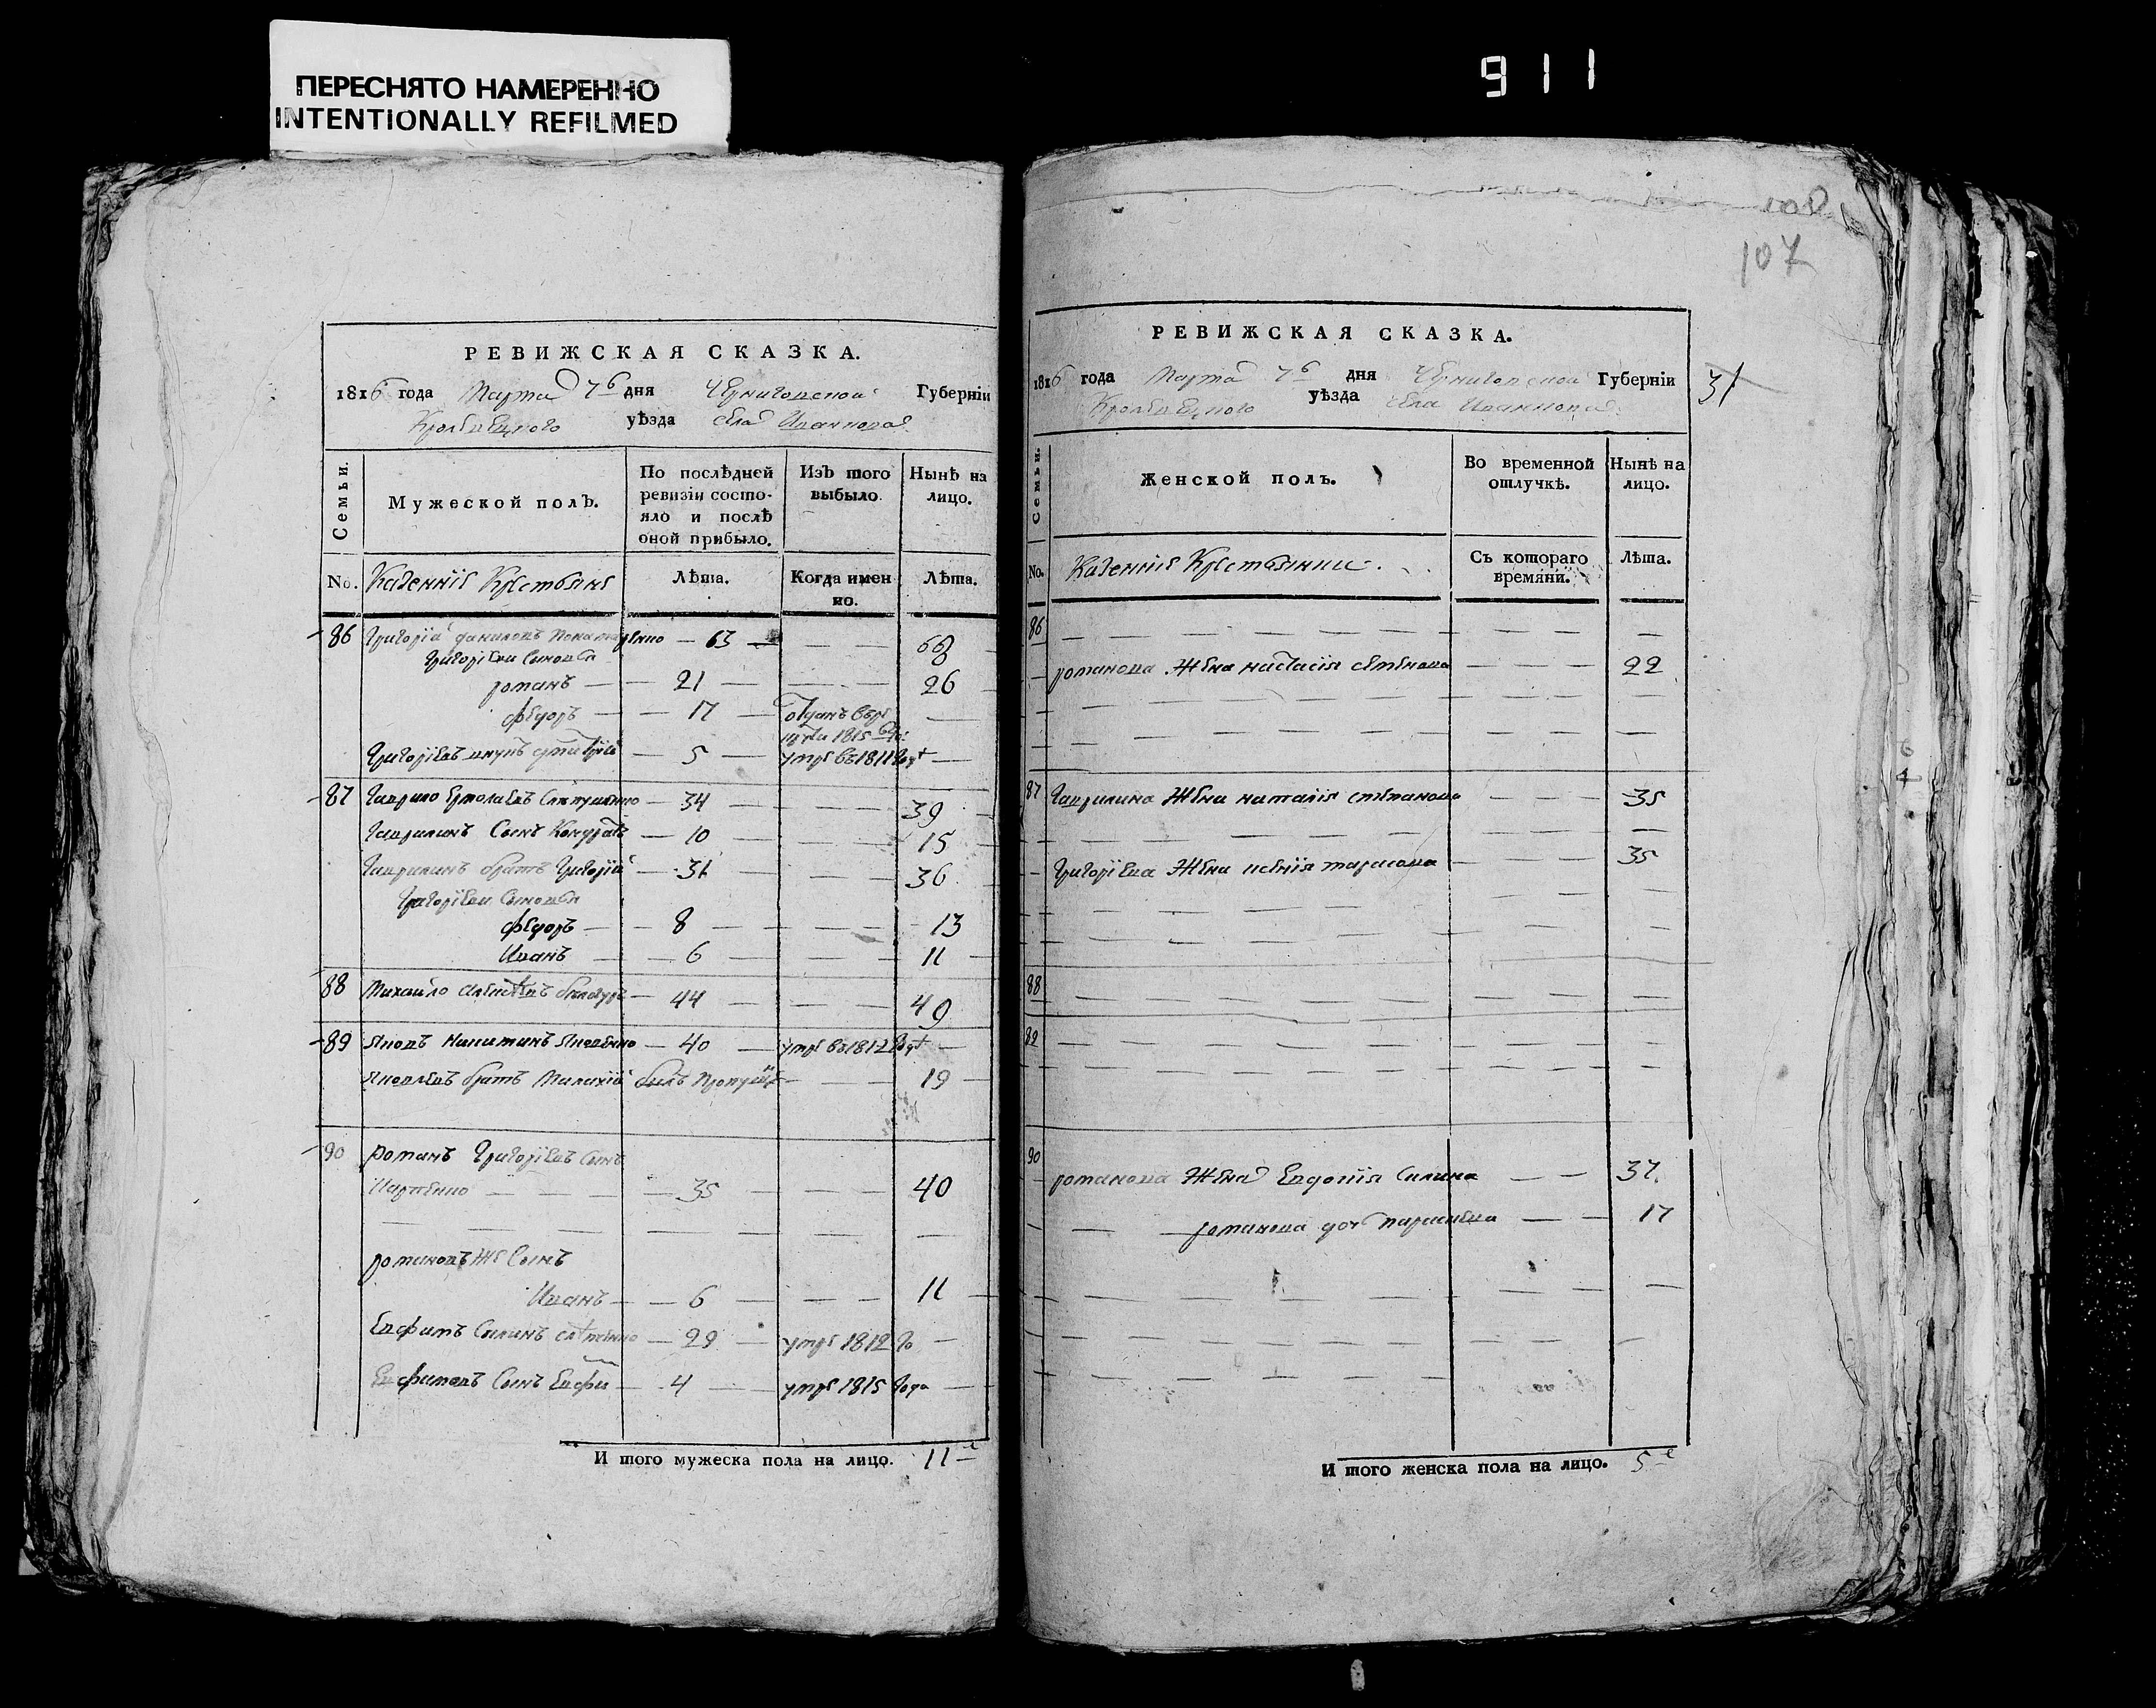 ПЕРЕСНЯТО НАМЕРЕННО
INTENTIONALLY REFILMED
911
РЕВИЖСКАЯ СКАЗКА.
1816 года Марта 7 дня Черниговской Губерніи
Кролевецкого уѣзда села Иванкова
Семьи.
Мужеской полъ.
По послѣдней ревизіи состояло и послѣ оной прибыло.
Изъ того выбыло.
Нынѣ на лицо.
No. Казенніе Крестьяне
Лѣта.
Когда имен но.
Лѣта.
86 Григорій даниловъ Понамаренко — 63 — — — 68
Григоріеви Синовья
романъ — — 21 — — — — 26
федоръ — — 17 — отданъ въ ре
круты 1815 года
Григоріевъ внукъ — 5 — умре въ 1811 году —
87 Гаврило Ермолаевъ — 34 — — — 39
Гаврилинъ Синъ Кондратъ — 10 — — — 15
Гаврилинъ братъ Григорій — 31 — — — 36
Григоріеви Синовья
федоръ — — 8 — — — — 13
Иванъ — — 6 — — — — 11
88 Михайло — 44 — — — 49
89 Яковъ Никитинъ Яковенко — 40 — умре въ 1812 году —
Яковлевъ братъ Малахій билъ — — — 19
90 романъ Григоріевъ Синъ
Карпенко — — — — 35 — — — 40
романовъ же Синъ
Иванъ — — 6 — — — — 11
Евфимъ Силинъ — 29 — умре 1812 го —
Евфимовъ Синъ Евфи — 4 — умре 1815 года —
И того мужеска пола на лицо. 11
100
107
31
РЕВИЖСКАЯ СКАЗКА.
1816 года Марта 7 дня Черниговской Губерніи
Кролевецкого уѣзда села Иванкова
Семьи.
Женской полъ.
Во временной отлучкѣ.
Нынѣ на лицо.
No. Казенніе Крестьянки.
Съ котораго времяни.
Лѣта.
86
романова Жена настасія семенова — — — 22
87 Гаврилина Жена наталія степанова — — — 35
Григоріева Жена ксенія тарасова — — — 35
88
89
90
романова Жена Евдокія Силина — — 37.
романова доч параскева — — 17
И того женска пола на лицо. 5